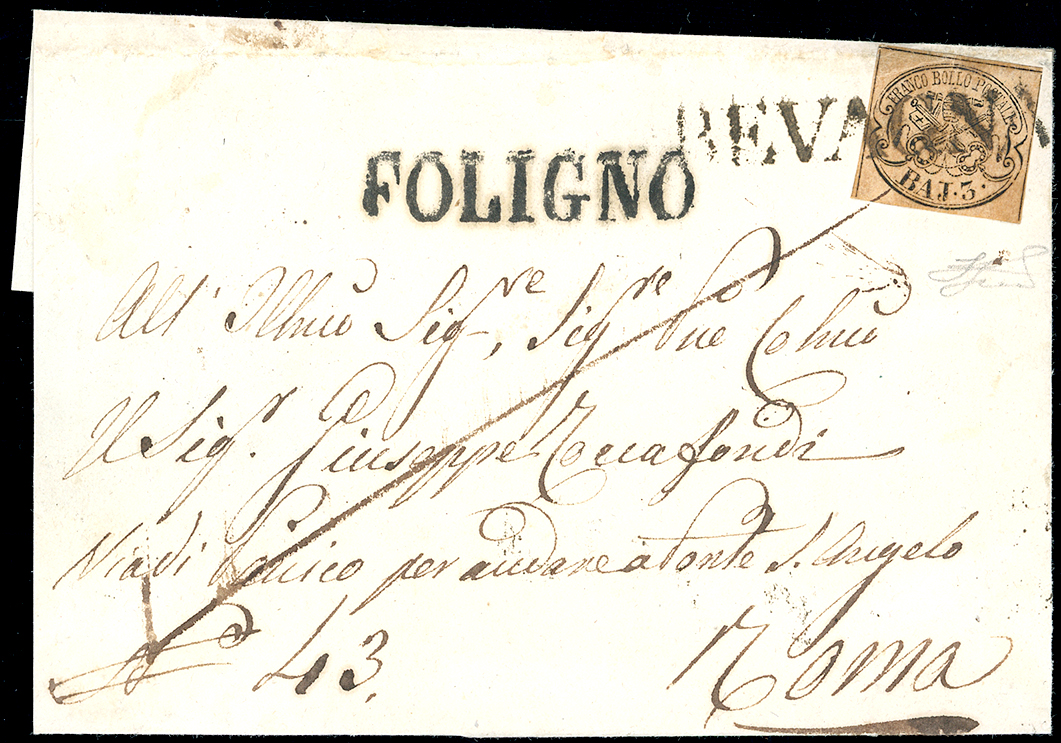 FRANCO BOLLO POSTALE
BAJ. 3.
BEVAGNA
FOLIGNO
All' Illmo Sig.re, Sig.re Pne Colmo
Il Sig.r Giuseppe Roccafondi
Via di Panico per andare a Ponte S. Angelo
No 43.
Roma